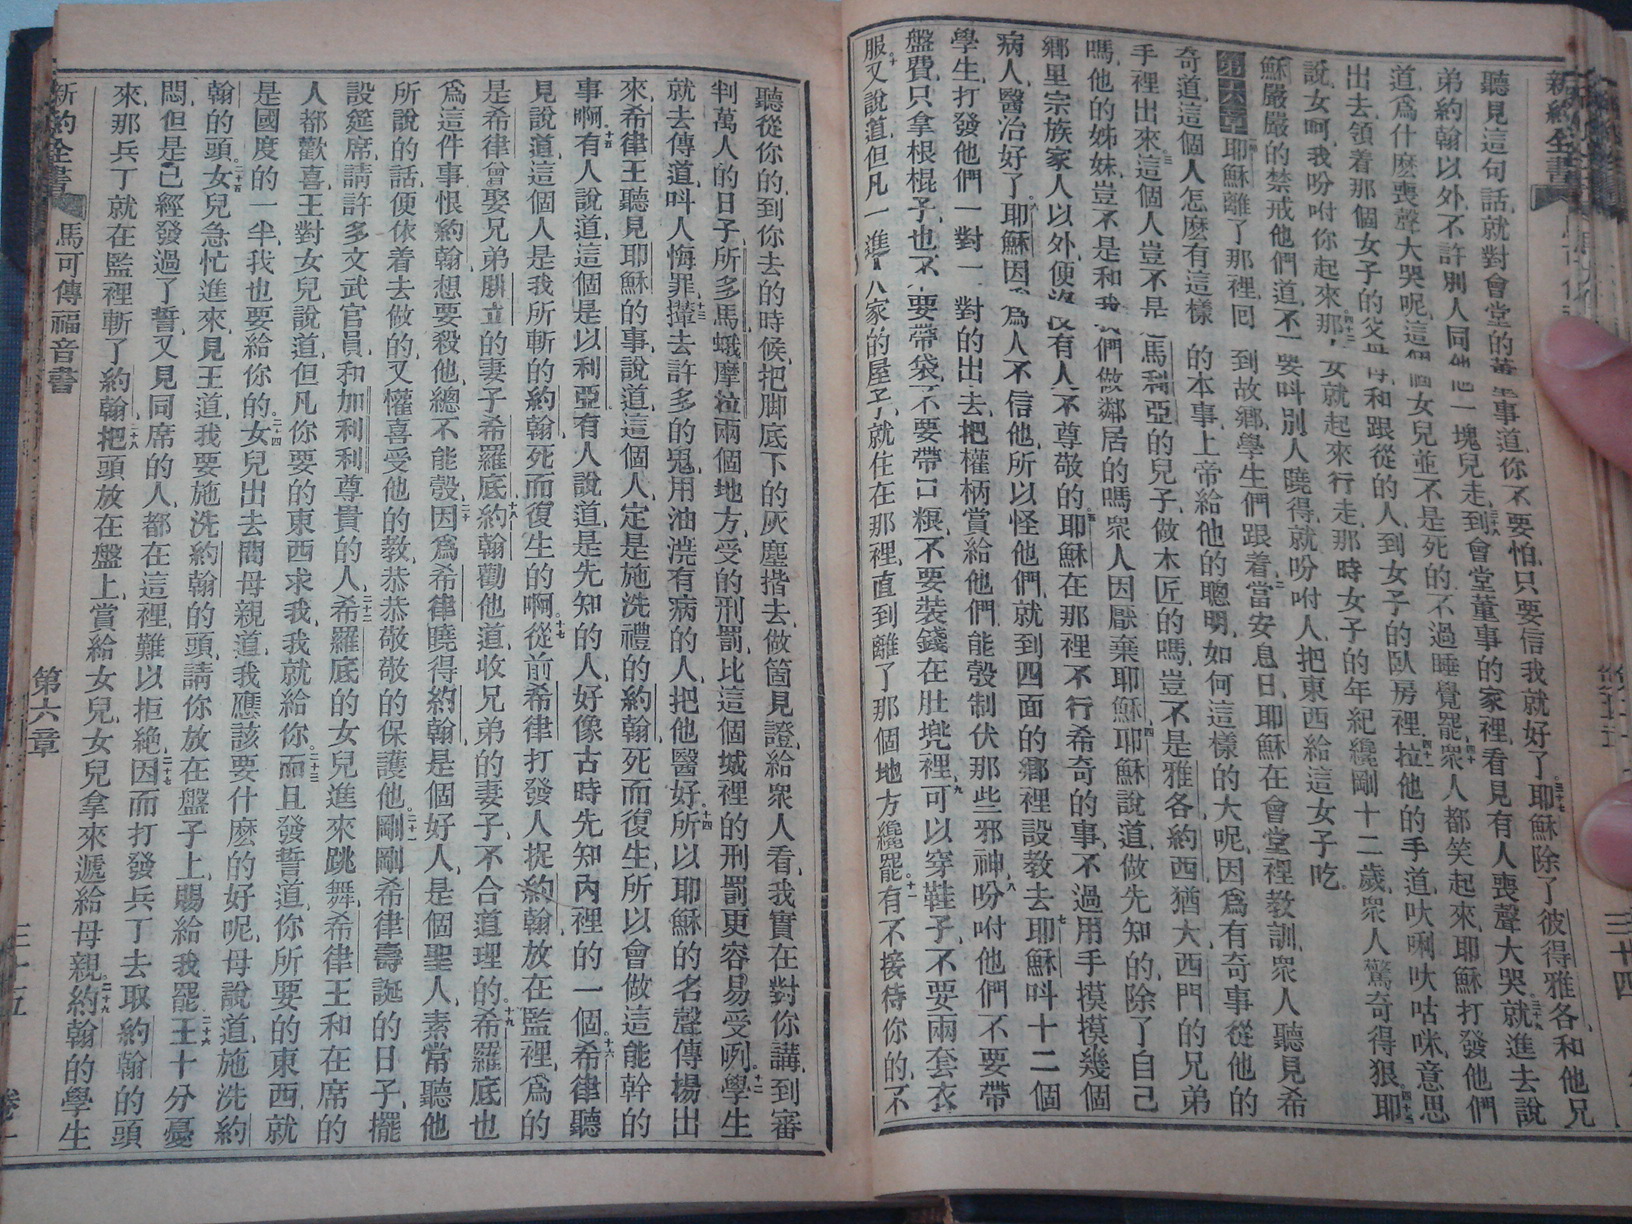 聽見這句話就對會堂的董事道你不要怕只要信我就好了三十七耶穌除了彼得雅各和他兄
弟約翰以外不許別人同他一塊兒走三十八到會堂董事的家裡看見有人喪聲大哭三十九就進去說
道爲什麽喪聲大哭呢這個女兒並不是死的不過睡覺罷四十衆人都笑起來耶穌打發他們
出去領着那個女子的父母和跟從的人到女子的臥房裡四十一拉他的手道吠唎吠咕咪意思
說女呵我吩咐你起來四十二那女就起來行走那時女子的年紀纔剛十二歲衆人驚奇得狠四十三耶
穌嚴嚴的禁戒他們道不要呌別人曉得就吩咐人把東西給這女子吃
第六章耶穌離了那裡囘到故鄉學生們跟着二當安息日耶穌在會堂裡教訓衆人聽見希
奇道這個人怎麽有這樣的本事上帝給他的聰明如何這樣的大呢因爲有奇事從他的
手裡出來三這個人豈不是馬利亞的兒子做木匠的嗎豈不是雅各約西猶大西門的兄弟
嗎他的姊妹豈不是和我們做鄰居的嗎衆人因厭棄耶穌四耶穌說道做先知的除了自己
鄉里宗族家人以外便沒有人不尊敬的五耶穌在那裡不行希奇的事不過用手摸摸幾個
病人醫治好了六耶穌因爲人不信他所以怪他們就到四面的鄉裡設教去七耶穌呌十二個
學生打發他們一對一對的出去把權柄賞給他們能彀制伏那些邪神八吩咐他們不要帶
盤費只拿根棍子也不要帶袋不要帶口粮不要裝錢在肚兜裡九可以穿鞋子不要兩套衣
服十又說道但凡一進人家的屋子就住在那裡直到離了那個地方纔罷十一有不接待你的不
新約全書 馬可傳福音書 第六章 三十五 卷一
聽從你的到你去的時候把脚底下的灰塵揩去做箇見證給衆人看我實在對你講到審
判萬人的日子所多馬蛾摩拉兩個地方受的刑罰比這個城裡的刑罰更容易受咧十二學生
就去傳道呌人悔罪十三攆去許多的鬼用油澆有病的人把他醫好十四所以耶穌的名聲傳揚出
來希律王聽見耶穌的事說道這個人定是施洗禮的約翰死而復生所以會做這能幹的
事啊十五有人說道這個是以利亞有人說道是先知的人好像古時先知內裡的一個十六希律聽
見說道這個人是我所斬的約翰死而復生的啊十七從前希律打發人捉約翰放在監裡爲的
是希律曾娶兄弟腓立的妻子希羅底十八約翰勸他道收兄弟的妻子不合道理的十九希羅底也
爲這件事恨約翰想要殺他總不能彀二十因爲希律曉得約翰是個好人是個聖人素常聽他
所說的話便依着去做的又懽喜受他的教恭恭敬敬的保護他二十一剛剛希律壽誕的日子擺
設筵席請許多文武官員和加利利尊貴的人二十二希羅底的女兒進來跳舞希律王和在席的
人都歡喜王對女兒說道但凡你要的東西求我我就給你二十三而且發誓道你所要的東西就
是國度的一半我也要給你的二十四女兒出去問母親道我應該要什麽的好呢母說道施洗約
翰的頭二十五女兒急忙進來見王道我要施洗約翰的頭請你放在盤子上賜給我罷二十六王十分憂
悶但是已經發過了誓又見同席的人都在這裡難以拒絶二十七因而打發兵丁去取約翰的頭
來那兵丁就在監裡斬了約翰二十八把頭放在盤上賞給女兒女兒拿來遞給母親二十九約翰的學生